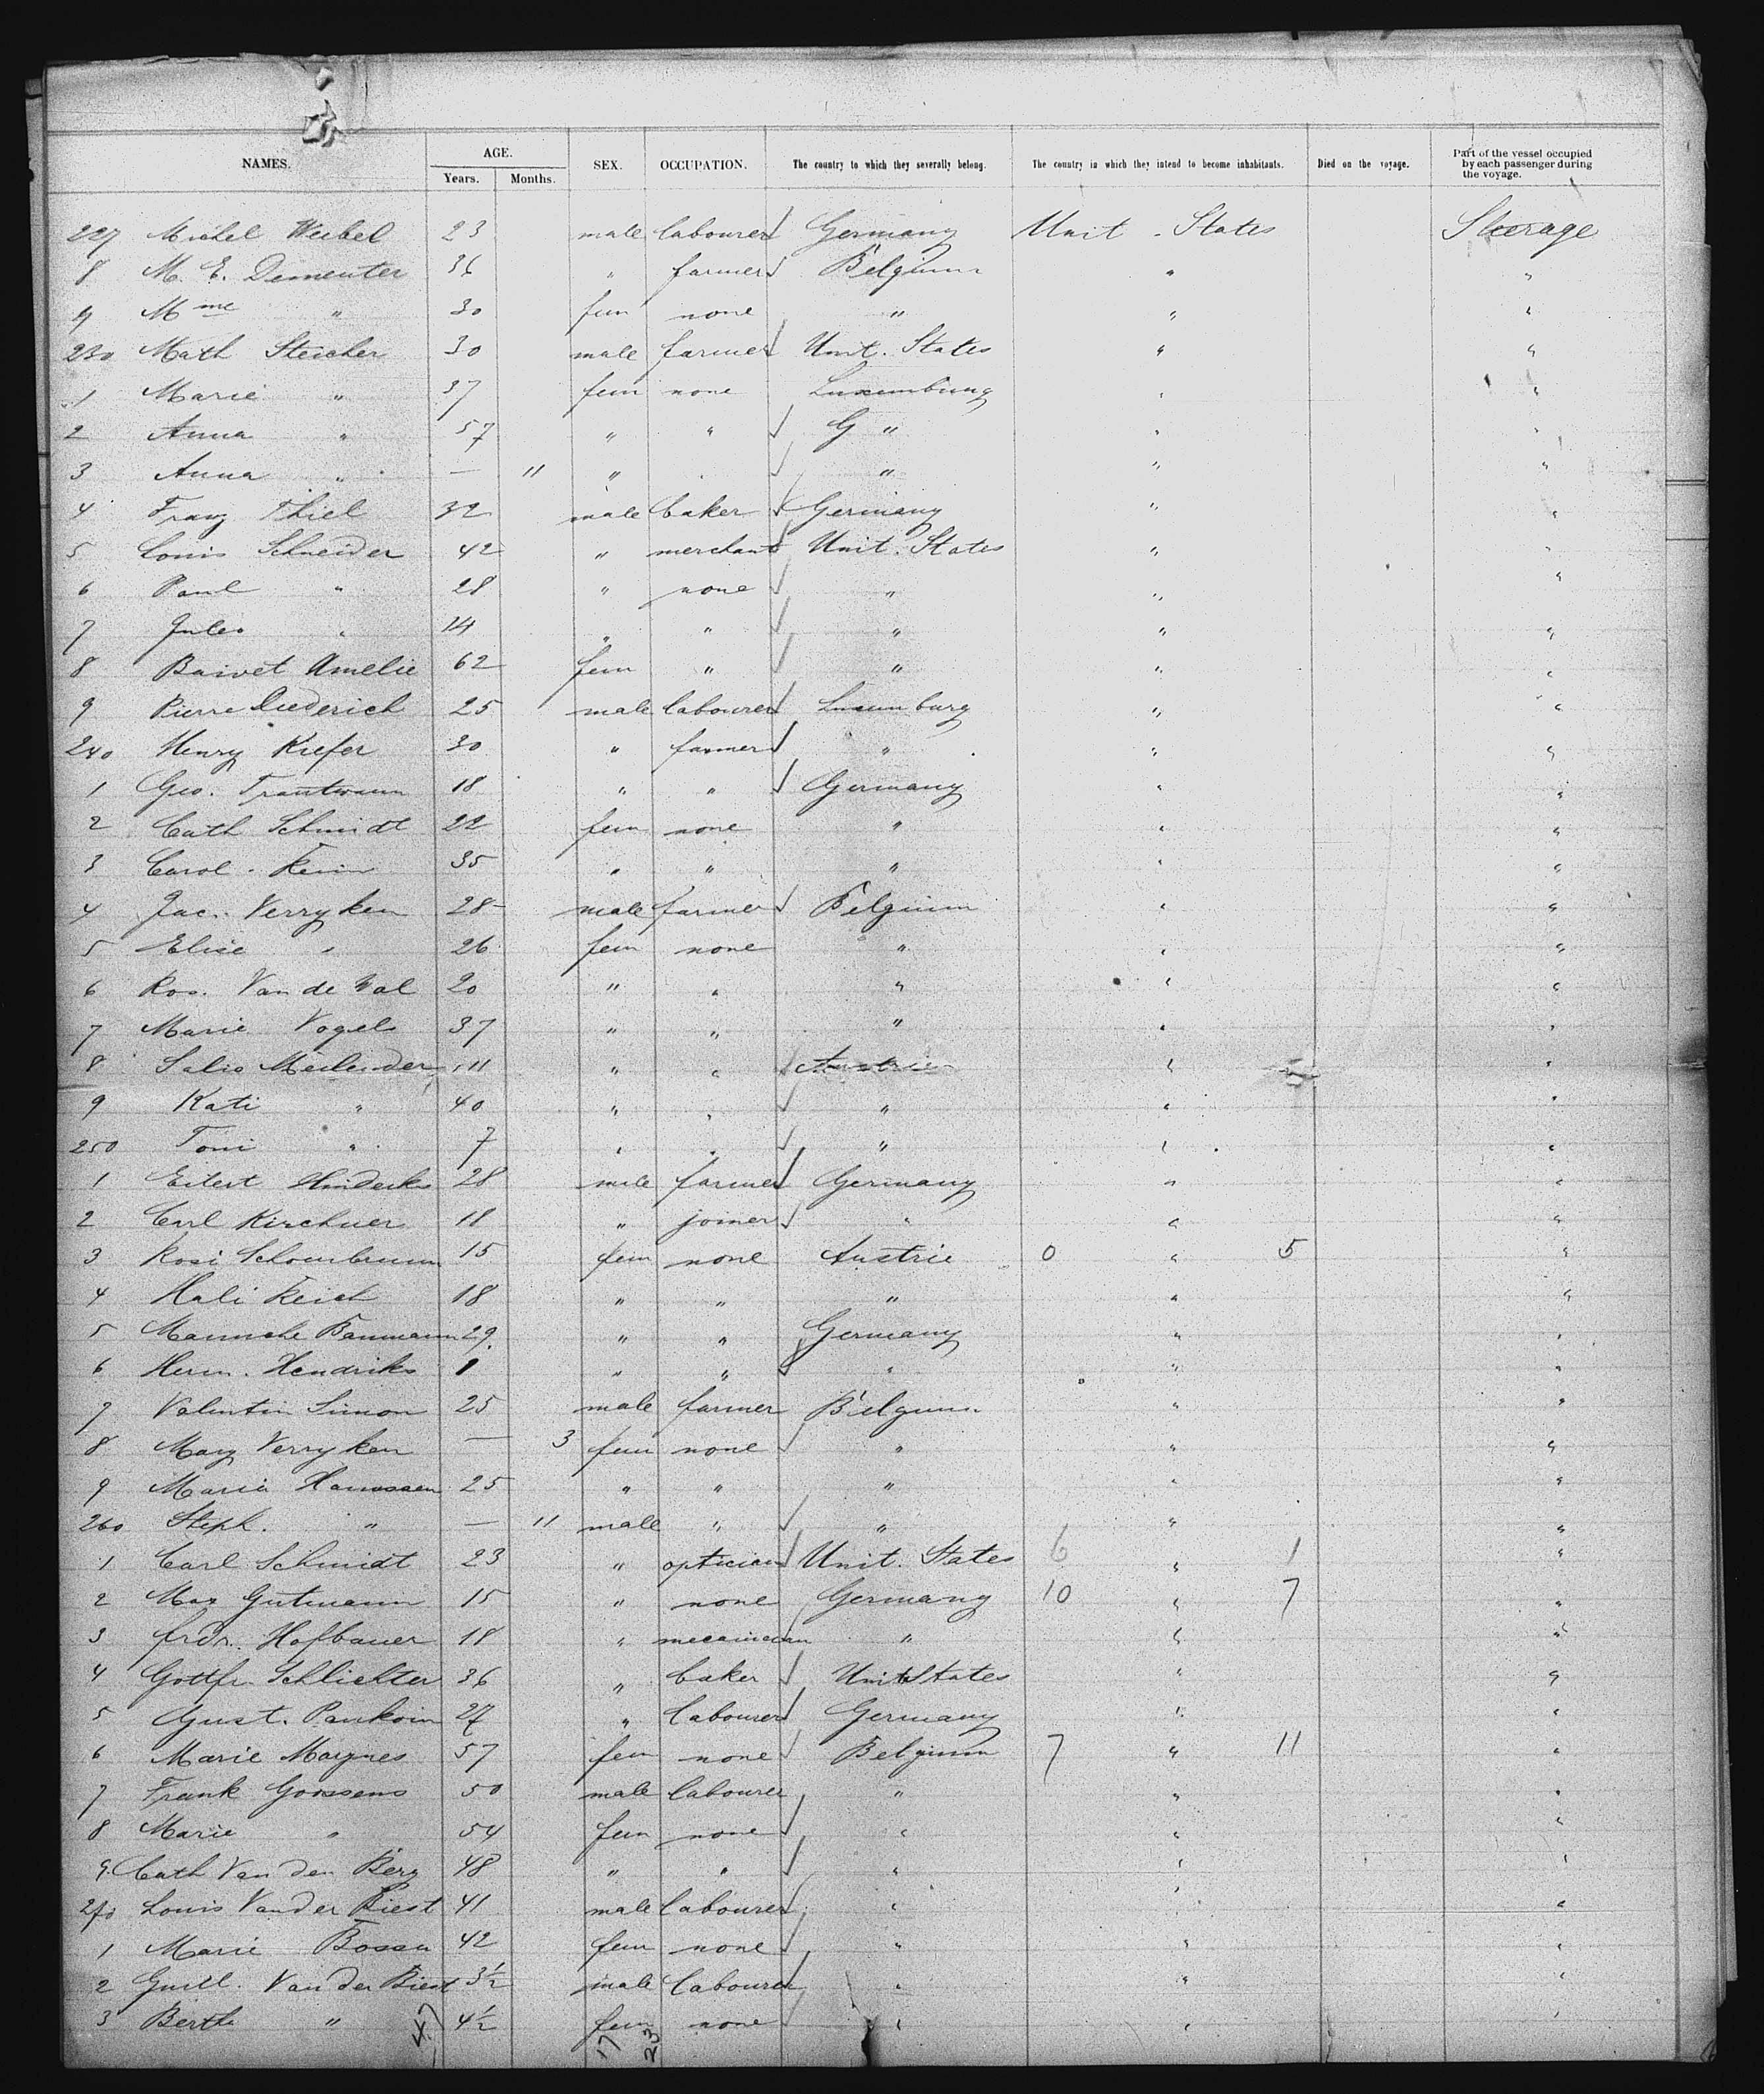 NAMES. AGE. Years. Months. SEX. OCCUPATION. The country to which they severally belong. The country in which they intend to become inhabitants. Died on the voyage. Part of the vessel occupied by each passenger during the voyage.
227 Michel Weibel 23 male labourer Germany Unit. States Steerage
8 M. E. Dementer 36 " farmer Belgium " "
9 Mme " 30 fem none " " "
230 Math Steicher 30 male farmer Unit. States " "
1 Marie " 37 fem none Luxemburg " "
2 Anna " 57 " " G " " "
3 Anna " — 11 " " " " "
4 Franz Thiel 32 male baker Germany " "
5 Louis Schneider 42 " merchant Unit. States " "
6 Paul " 28 " none " " "
7 Jules " 14 " " " " "
8 Baivet Amelie 62 fem " " " "
9 Pierre Diederich 25 male labourer Luxemburg " "
240 Henry Kiefer 30 " farmer " " "
1 Geo. Trautwann 18 " " Germany " "
2 Cath Schmidt 22 fem none " " "
3 Carol. 35 " " " " "
4 Jac. Verryken 28 male farmer Belgium " "
5 Elise " 26 fem none " " "
6 Ros. Van de Wal 20 " " " " "
7 Marie Vogels 37 " " " " "
8 Salis 11 " " Austria " "
9 Kati " 40 " " " " "
250 Toni " 7 " " " " "
1 Eilert Hinderks 28 male farmer Germany " "
2 Carl Kirchner 18 " joiner " " "
3 Rosi Schoenbrunn 15 fem none Austrie 0 " 5 "
4 Hali Reich 18 " " " " "
5 Baumann 29 " " Germany " "
6 Herm. Hendriks 1 " " " " "
7 Valentin Simon 25 male farmer Belgium " "
8 Mary Verryken — 3 fem none " " "
9 Maria Hanssaen 25 " " " " "
260 Steph. " — 11 male " " " "
1 Carl Schmidt 23 " optician Unit. States 6 " 1 "
2 Max Gutmann 15 " none Germany 10 " 7 "
3 Frdr. Hofbauer 18 " mecanician " " "
4 Gottfr. Schlichter 36 " baker Unit States " "
5 Gust. Pankoin 27 " labourer Germany " "
6 Marie Maynes 57 fem none Belgium 7 " 11 "
7 Frank Goossens 50 male labourer " " "
8 Marie " 54 fem none " " "
9. Cath Van den Berg 48 " " " " "
270 Louis Van der Biest 41 male labourer " " "
1 Marie Bossu 42 fem none " " "
2 Guill. Van der Biest 3½ male labourer " " "
3 Berthe " 4½ fem none " " "
47 17 23